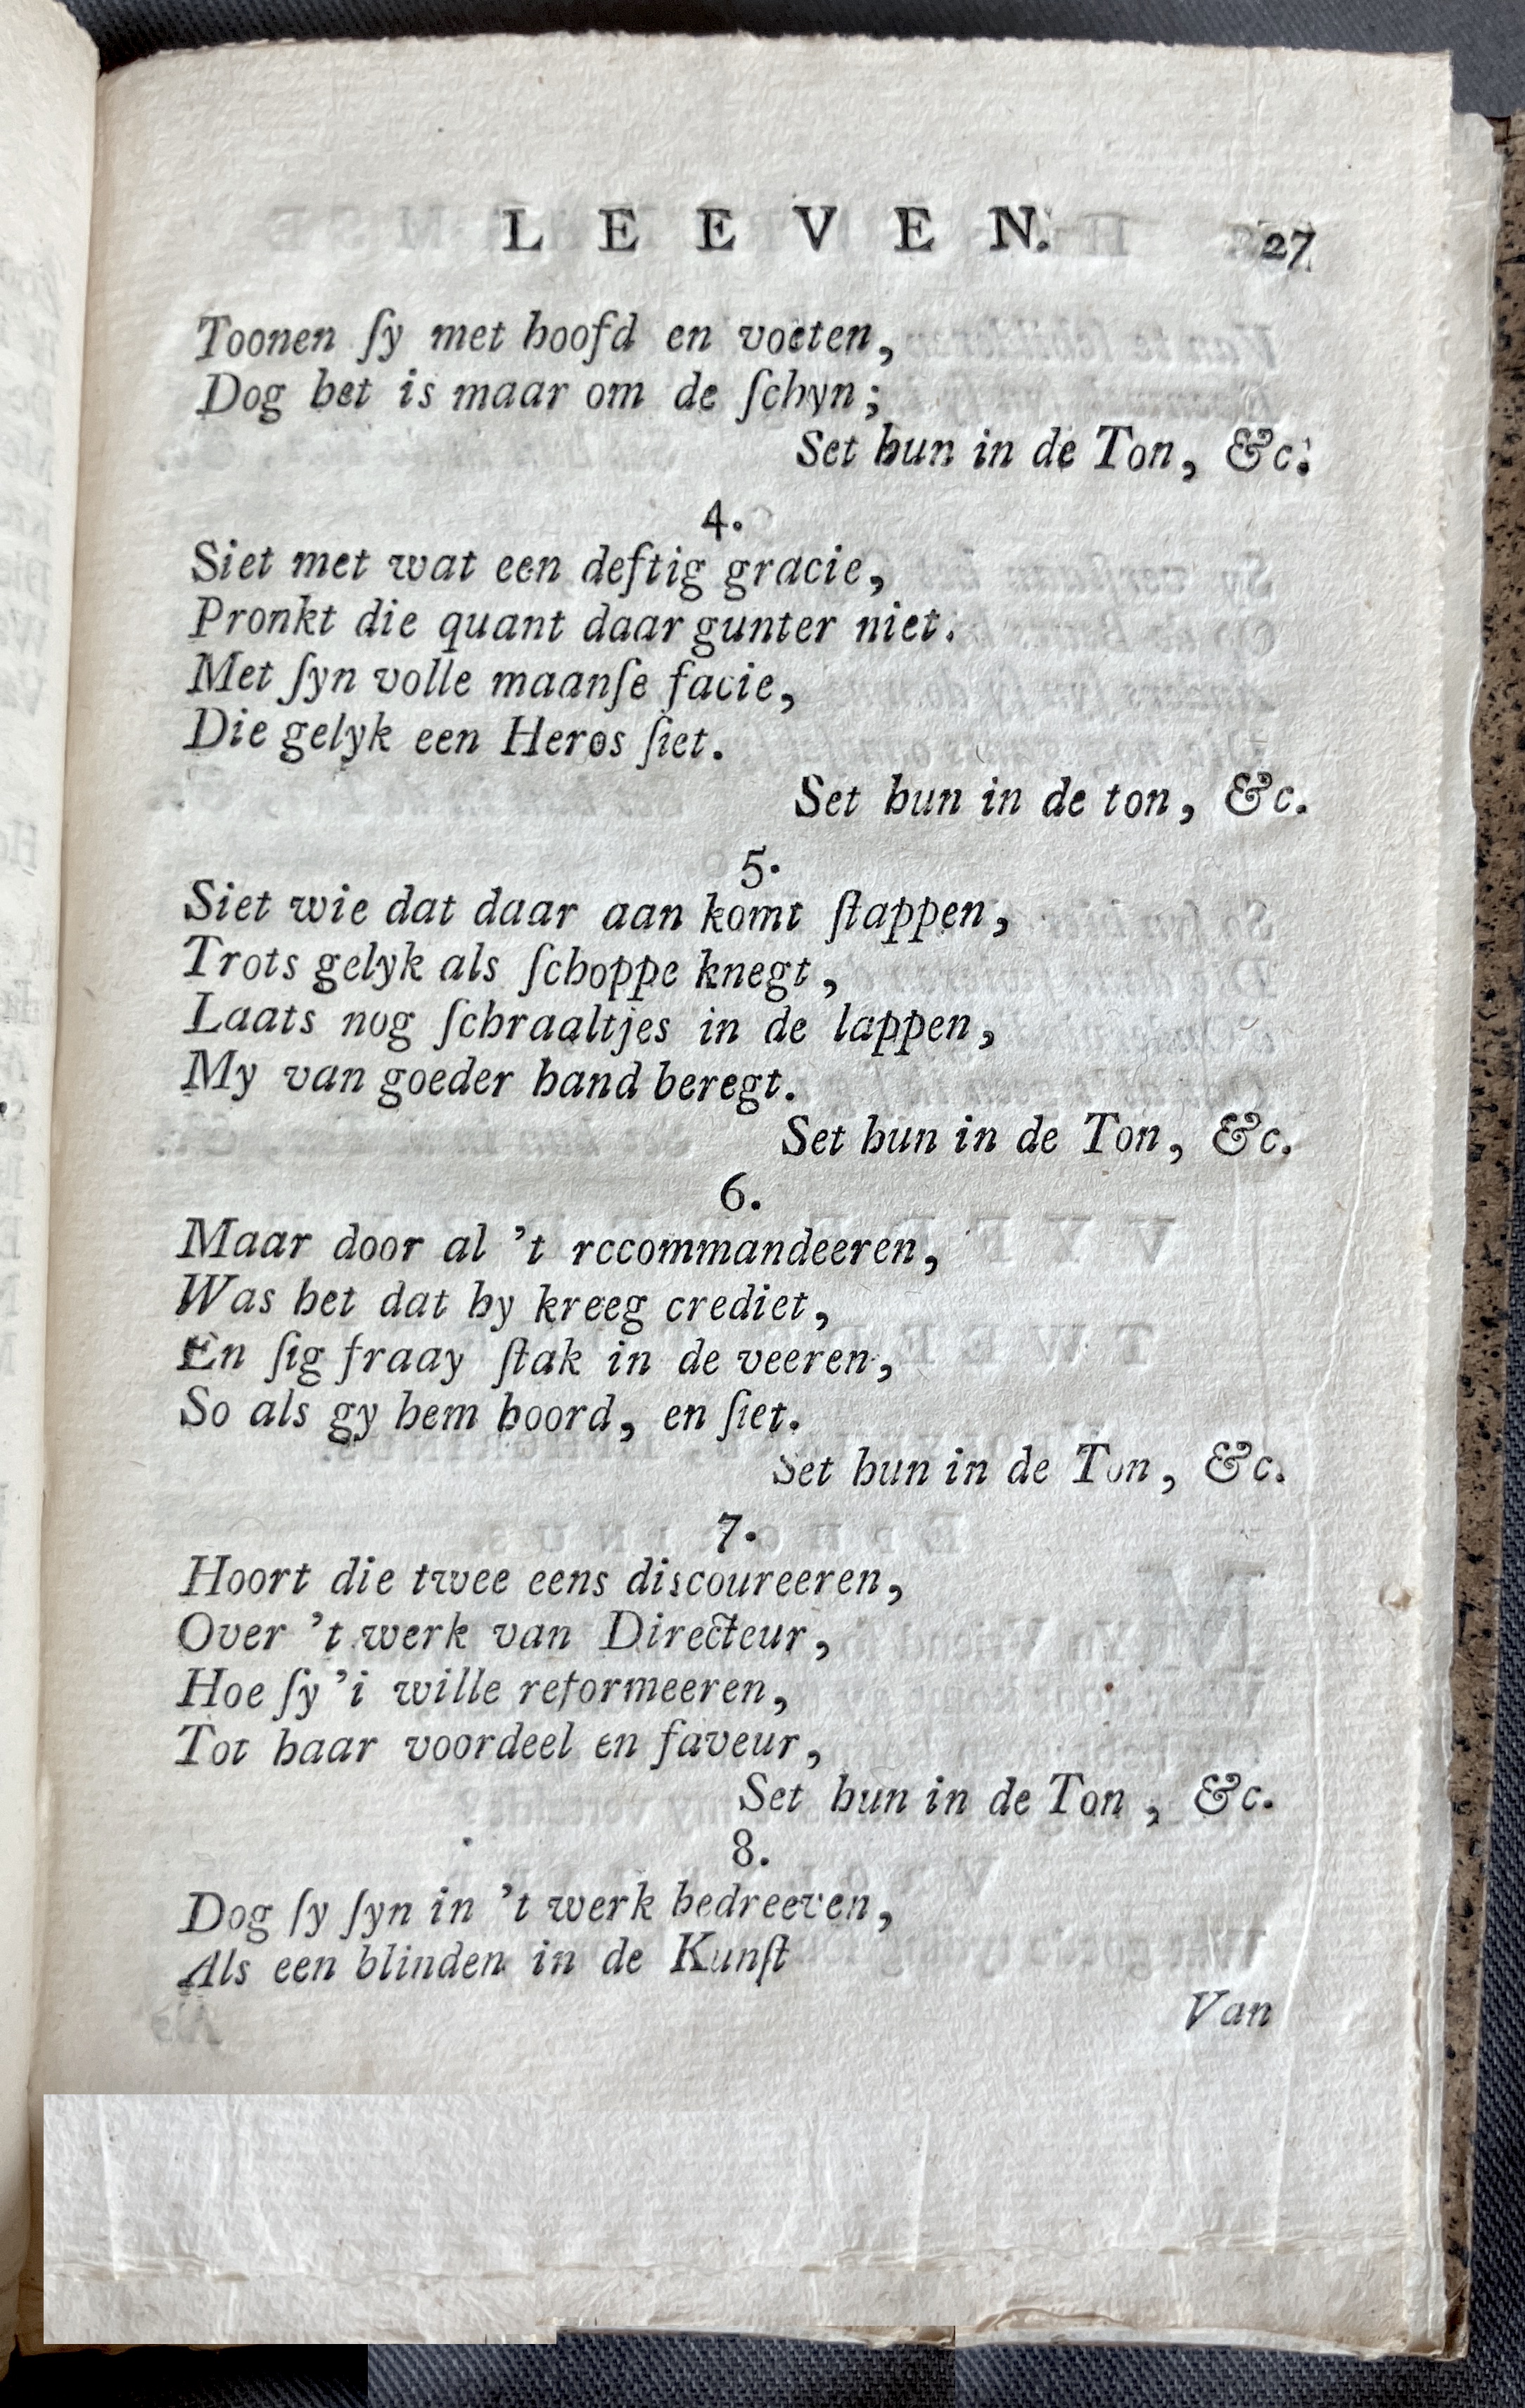 LEEVEN. 27
Toonen ſy met hoofd en voeten,
Dog het is maar om de ſchyn;
Set hun in de Ton, &c.
4.
Siet met wat een deftig gracie,
Pronkt die quant daar gunter niet.
Met ſyn volle maanſe facie,
Die gelyk een Heros ſiet.
Set hun in de ton, &c.
5.
Siet wie dat daar aan komt ſtappen,
Trots gelyk als ſchoppe knegt,
Laats nog ſchraaltjes in de lappen,
My van goeder hand beregt.
Set hun in de Ton, &c.
6.
Maar door al 't rccommandeeren,
Was het dat hy kreeg crediet,
En ſig fraay ſtak in de veeren,
So als gy hem hoord, en ſiet.
Set hun in de Ton, &c.
7.
Hoort die twee eens discoureeren,
Over 't werk van Directeur,
Hoe ſy 'i wille reformeeren,
Tot haar voordeel en faveur,
Set hun in de Ton, &c.
8.
Dog ſy ſyn in 't werk bedreeven,
Als een blinden in de Kunſt
Van